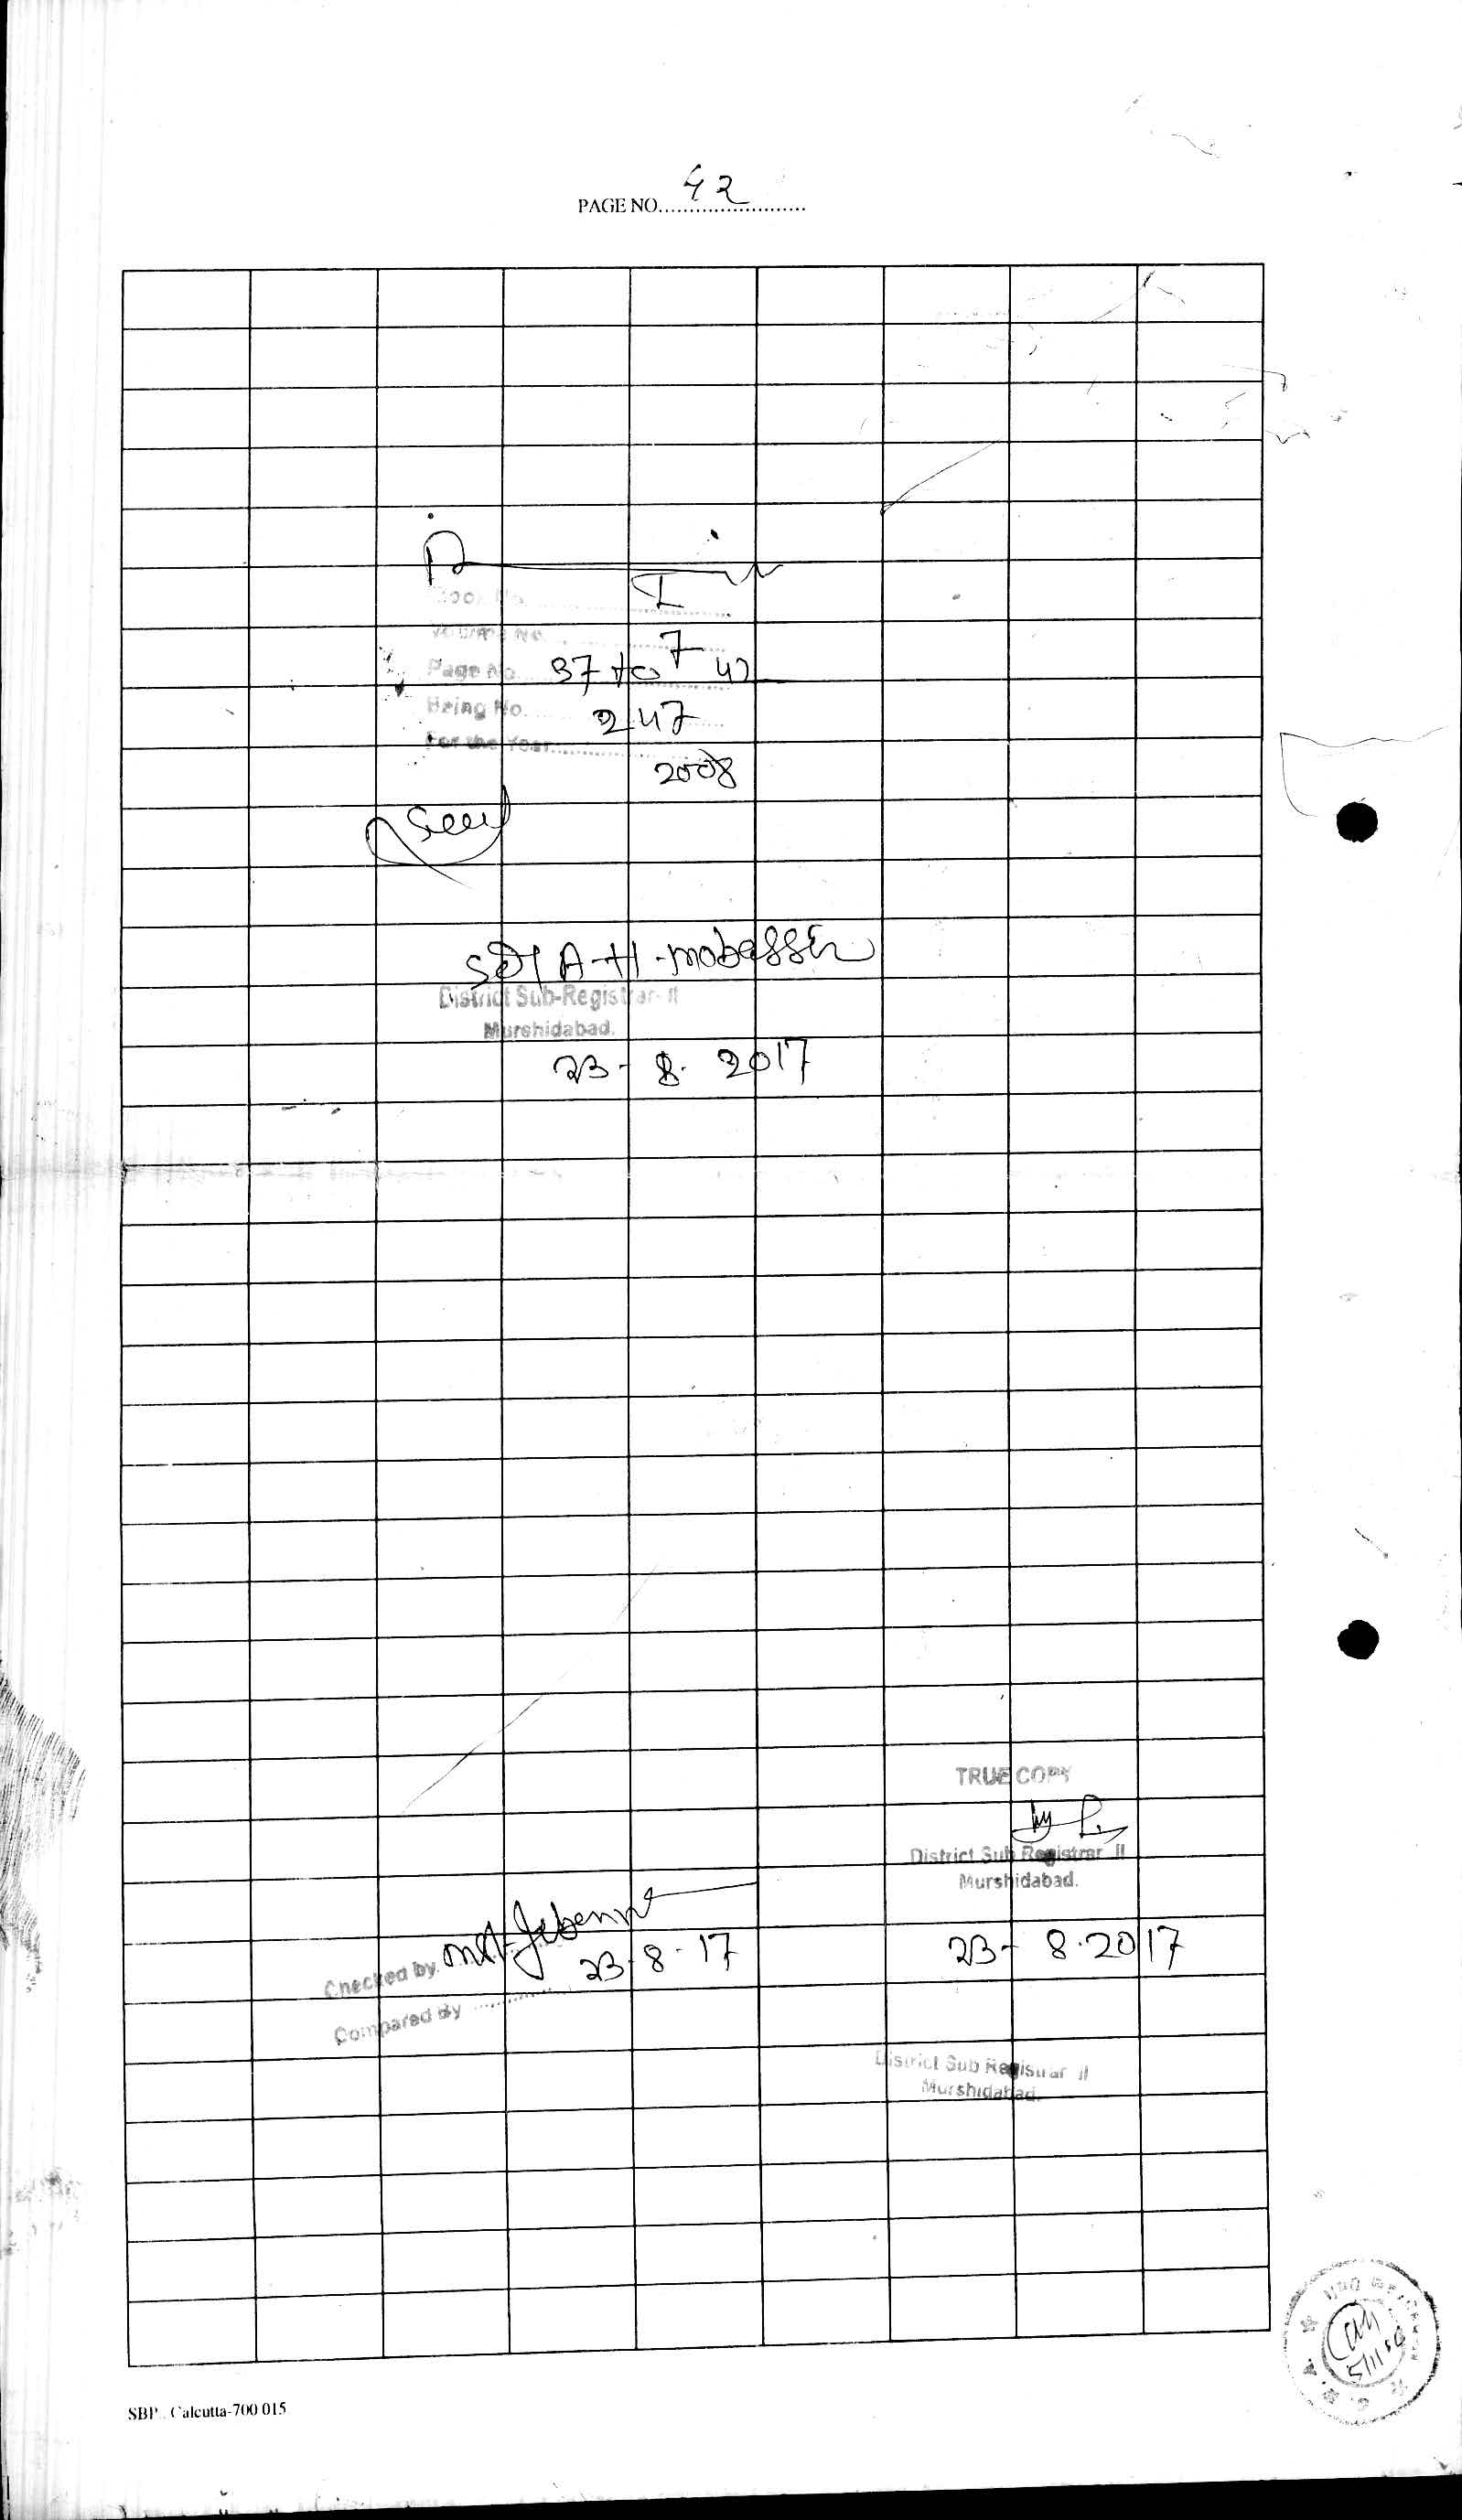 PAGE NO. 42
I
Volume No. 7
Page No. 37 to 42
Being No. 247
For the Year
2008
Seal
Sd/ A-H-mobasser
District Sub-Registrar-II
Murshidabad.
23-8-2017
TRUE COPY
District Sub Registrar II
Murshidabad.
Checked by
23-8-17
23-8-2017
Compared By
District Sub Registrar II
Murshidabad.
SBP Calcutta-700 015